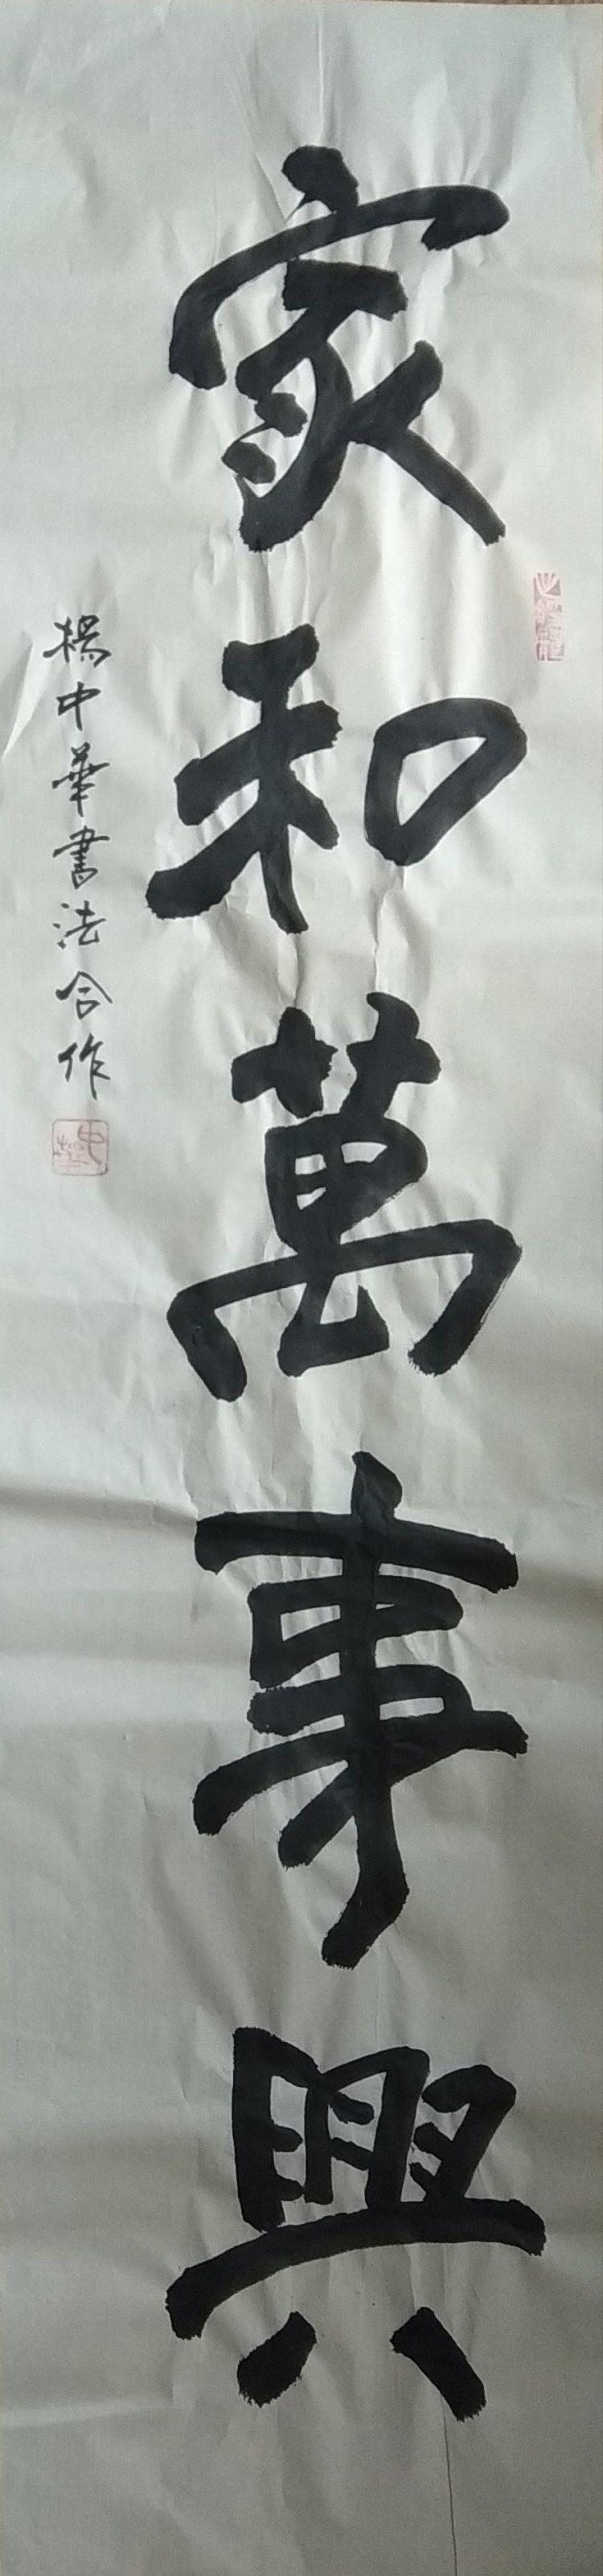 家和萬事興
楊中華書法合作